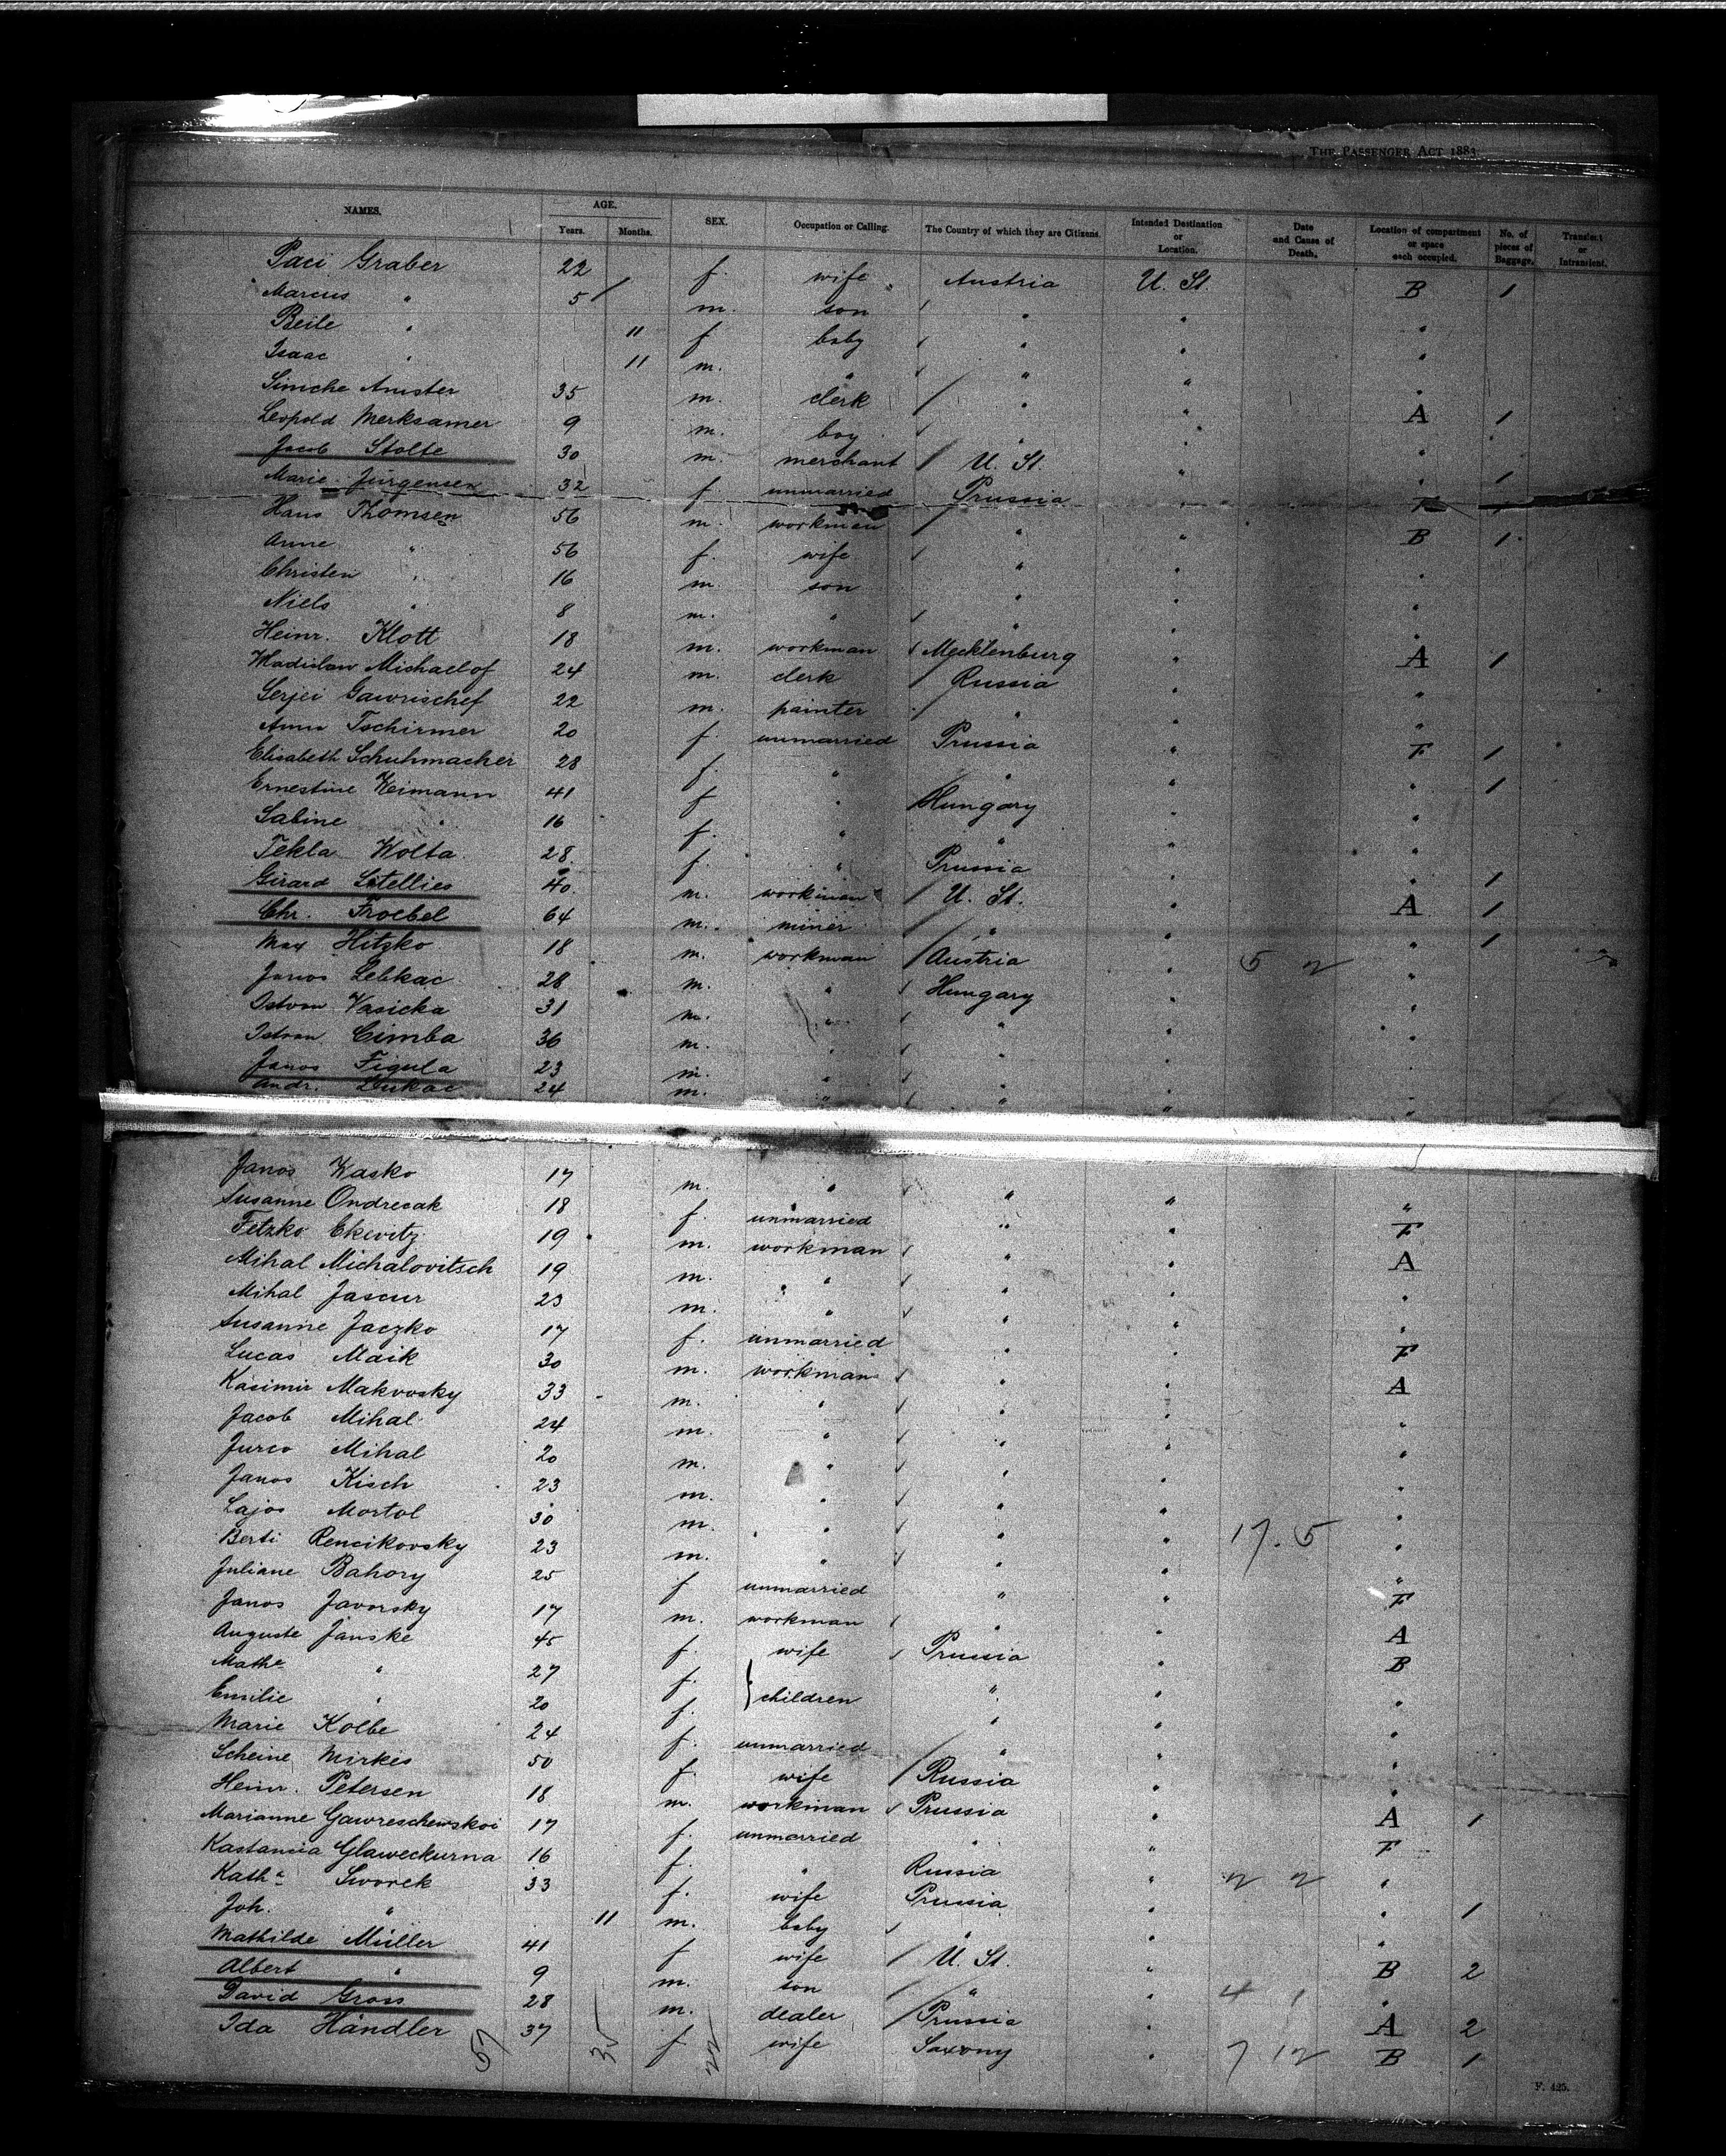 THE PASSENGER ACT 1882
NAMES. AGE. SEX. Occupation or Calling. The Country of which they are Citizens. Intended Destination or Location. Date and Cause of Death. Location of compartment or space each occupied. No. of pieces of Baggage. Transient or Intransient.
Years. Months.
Paci Graber 22 f. wife Austria U. St. B 1
Marcus " 5 m. son " " "
Beile " 11 f baby " " "
Isaac " 11 m. " " " "
Simche Amster 35 m. clerk " " A 1
Leopold Merksamer 9 m. boy " " "
Jacob Stolte 30 m. merchant U. St. " " 1
Marie Jürgensen 32 f. unmarried Prussia " F 1
Hans Thomsen 56 m. workman " " B 1
Anne " 56 f. wife " " "
Christen " 16 m. son " " "
Niels " 8 m. " " " "
Heinr. Klott 18 m. workman Mecklenburg " A 1
Wladislaw Michaelof 24 m. clerk Russia " "
Serjei Gawrischef 22 m. painter " " "
Anna Tschirmer 20 f. unmarried Prussia " F 1
Elisabeth Schuhmacher 28 f. " " " " 1
Ernestine Weimann 41 f " Hungary " "
Sabine " 16 f. " " " "
Tekla Wolta 28 f. " Prussia " " 1
Girard 40 m. workman U. St. " A 1
Chr. Froebel 64 m. miner " " " 1
Max Hitzko 18 m. workman Austria " 5 2 "
Janos Lebkac 28 m. " Hungary " "
Istvan Vasicka 31 m. " " " "
Istvan Cimba 36 m. " " " "
Janos Figula 23 m. " " " "
Andr. Dukac 24 m. " " " "
Janos Kasko 17 m. " " " "
Susanne Ondrecak 18 f. unmarried " " F
Fetzko Ekevitz 19 m. workman " " A
Mihal Michalovitsch 19 m. " " " "
Mihal Jascur 23 m. " " " "
Susanne Jaczko 17 f. unmarried " " F
Lucas Maik 30 m. workman " " A
Kasimir Makvosky 33 m. " " " "
Jacob Mihal 24 m. " " " "
Jurco Mihal 20 m. " " " "
Janos Kisch 23 m. " " " "
Lajos Mortol 30 m. " " " "
Berti Rencikovsky 23 m. " " " 17. 5 "
Juliane Bahory 25 f unmarried " " F
Janos Javorsky 17 m. workman " " A
Auguste Janske 45 f. wife Prussia " B
Mathe " 27 f. children " " "
Emilie " 20 f. " " "
Marie Kolbe 24 f. unmarried " " "
Scheine Mirkes 50 f. wife Russia " "
Heinr. Petersen 18 m. workman Prussia " A 1
Marianne Gawreschewskoi 17 f. unmarried " " F
Kastancia Glaweckurna 16 f. " Russia " 2 2 "
Kath. Sworek 33 f. wife Prussia " " 1
Joh. " 11 m. baby " " "
Mathilde Müller 41 f wife U. St. " B 2
Albert " 9 m. son " " 4 1 "
David Gross 28 m. dealer Prussia " A 2
Ida Händler 37 f wife Saxony " 7 12 B 1
57 35 22
F. 425.